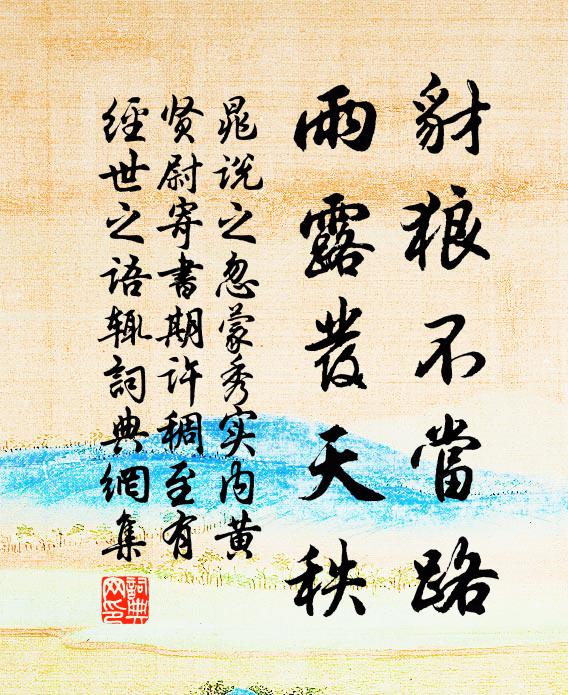 豺狼不當路
雨露發天秩
晁说之忽蒙秀实内黄
贤尉寄書期许稠至有
經世之语辄詞典網集